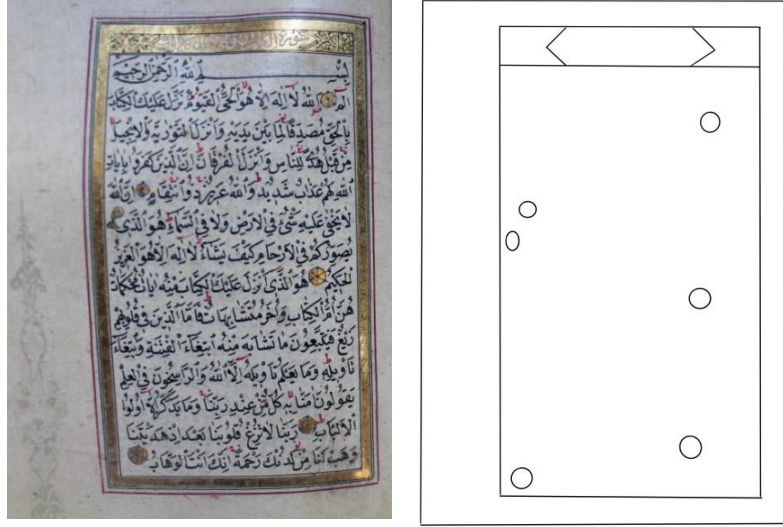 بِسْمِ اللهِ الرَّحْمٰنِ الرَّحِيمِ
الم اللهُ لَا اِلٰهَ اِلَّا هُوَ الْحَىُّ الْقَيُّومُ نَزَّلَ عَلَيْكَ الْكِتَابَ
بِالْحَقِّ مُصَدِّقًا لِمَا بَيْنَ يَدَيْهِ وَاَنْزَلَ التَّوْرٰيةَ وَالْاِنْجِيلَ
مِنْ قَبْلُ هُدًى لِلنَّاسِ وَاَنْزَلَ الْفُرْقَانَ اِنَّ الَّذِينَ كَفَرُوا بِاٰيَاتِ
اللهِ لَهُمْ عَذَابٌ شَدِيدٌ وَاللهُ عَزِيزٌ ذُو انْتِقَامٍ اِنَّ اللهَ
لَا يَخْفٰى عَلَيْهِ شَىْءٌ فِى الْاَرْضِ وَلَا فِى السَّمَاءِ هُوَ الَّذِى
يُصَوِّرُكُمْ فِى الْاَرْحَامِ كَيْفَ يَشَاءُ لَا اِلٰهَ اِلَّا هُوَ الْعَزِيزُ
الْحَكِيمُ هُوَ الَّذِى اَنْزَلَ عَلَيْكَ الْكِتَابَ مِنْهُ اٰيَاتٌ مُحْكَمَاتٌ
هُنَّ اُمُّ الْكِتَابِ وَاُخَرُ مُتَشَابِهَاتٌ فَاَمَّا الَّذِينَ فِى قُلُوبِهِمْ
زَيْغٌ فَيَتَّبِعُونَ مَا تَشَابَهَ مِنْهُ ابْتِغَاءَ الْفِتْنَةِ وَابْتِغَاءَ
تَأْوِيلِهِ وَمَا يَعْلَمُ تَأْوِيلَهُ اِلَّا اللهُ وَالرَّاسِخُونَ فِى الْعِلْمِ
يَقُولُونَ اٰمَنَّا بِهِ كُلٌّ مِنْ عِنْدِ رَبِّنَا وَمَا يَذَّكَّرُ اِلَّا اُولُوا
الْاَلْبَابِ رَبَّنَا لَا تُزِغْ قُلُوبَنَا بَعْدَ اِذْ هَدَيْتَنَا
وَهَبْ لَنَا مِنْ لَدُنْكَ رَحْمَةً اِنَّكَ اَنْتَ الْوَهَّابُ